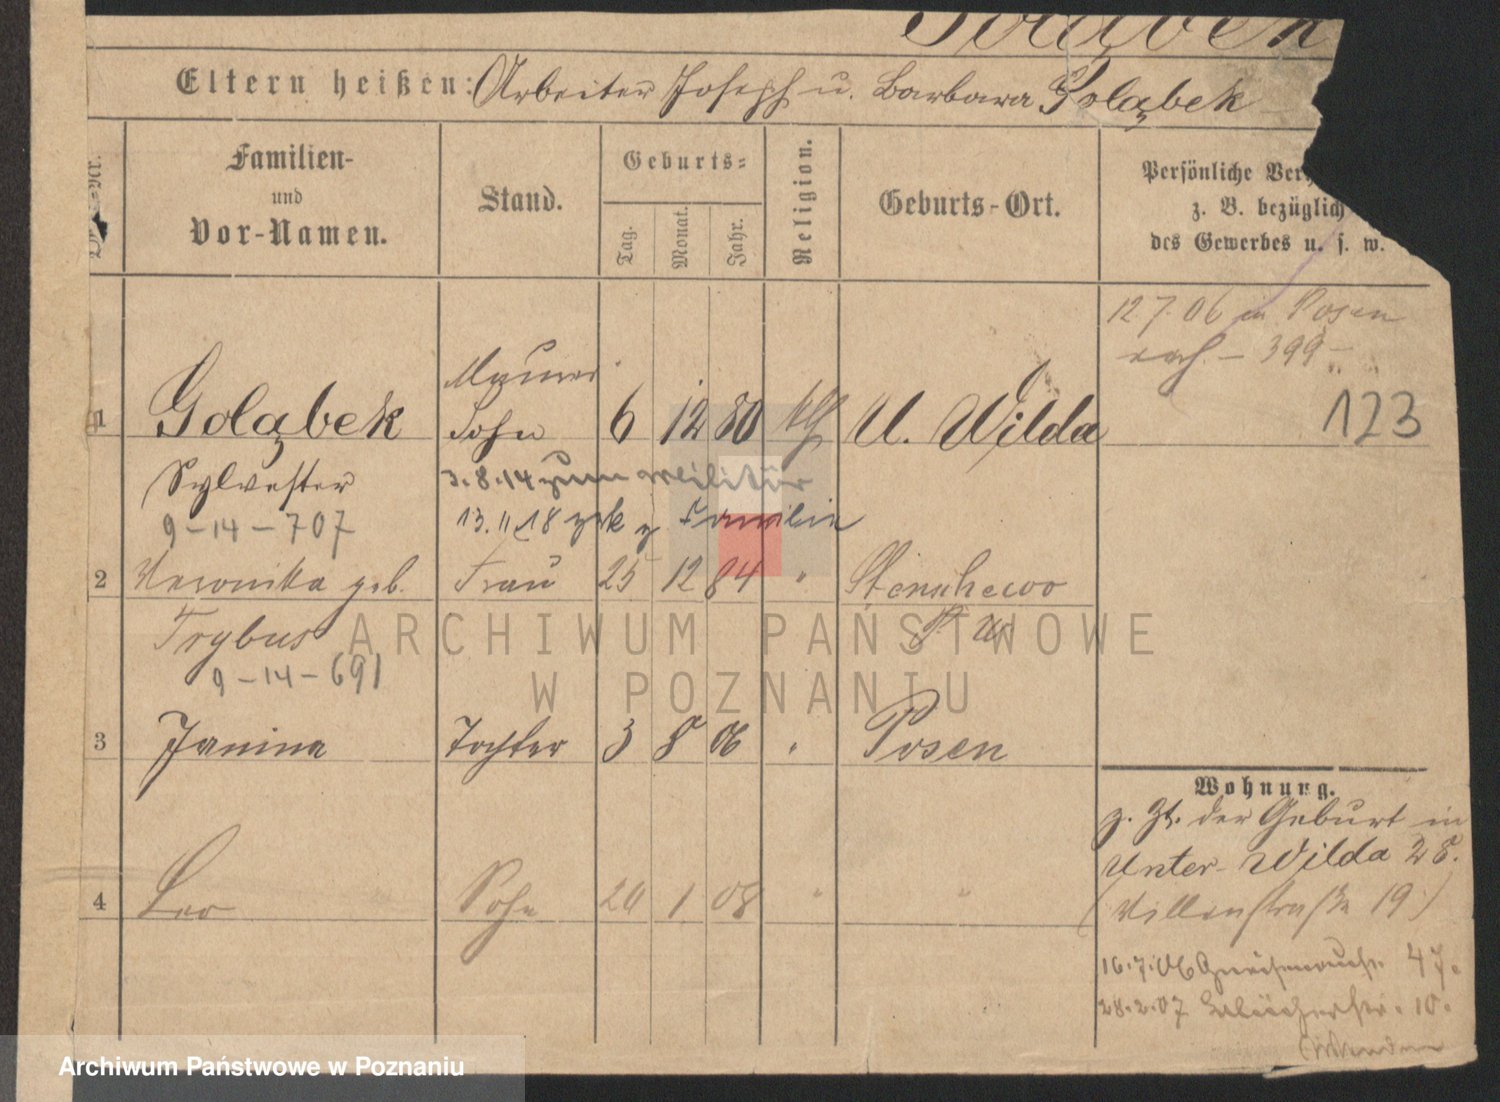 Goląbek
Eltern heißen: Arbeiter Joseph u. Barbara Goląbek
Nr.
Familien-
und
Vor-Namen.
Stand.
Geburts-
Tag.
Monat.
Jahr.
Religion.
Geburts-Ort.
Persönliche
z. B. bezüglich
des Gewerbes u. s. w.
12 7. 06 in Posen
nach - 399 -
123
Maurer
1 Goląbek Sohn 6 12 80 kth U. Wilda
Sylvester 3.8.14 zum Militär
9-14-707 13.11.18 zrk z Familie
2 Veronika geb. Frau 25 12 84 " Stenschewo
Trybus P. W.
9-14-691
3 Janina Tochter 3 8 06 " Posen
4 Leo Sohn 20 1 08 " "
Wohnung.
z. Zt. der Geburt in
Unter-Wilda 28.
(Villenstraße 19.)
16.7.06 Gneisenaustr. 47.
28.2.07 Blücherstr. 10.
ARCHIWUM PAŃSTWOWE
W POZNANIU
Archiwum Państwowe w Poznaniu